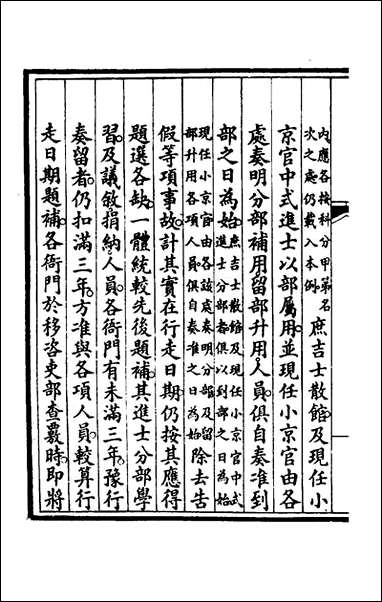 內應各按科分甲第名
次之處仍載入本例庶吉士散館及現任小
京官中式進士以部屬用並現任小京官由各
處奏明分部補用留部升用人員俱自奏准到
部之日為始庶吉士散館及現任小京官中式
進士分部者俱以到部之日為始
現任小京官由各該處奏明分部及留
部升用各項人員俱自奏准之日為始除去告
假等項事故計其實在行走日期仍按其應得
題選各缺一體統較先後題補其進士分部學
習及議敘捐納人員各衙門有未滿三年豫行
奏留者仍扣滿三年方准與各項人員較算行
走日期題補各衙門於移咨吏部查覈時即將